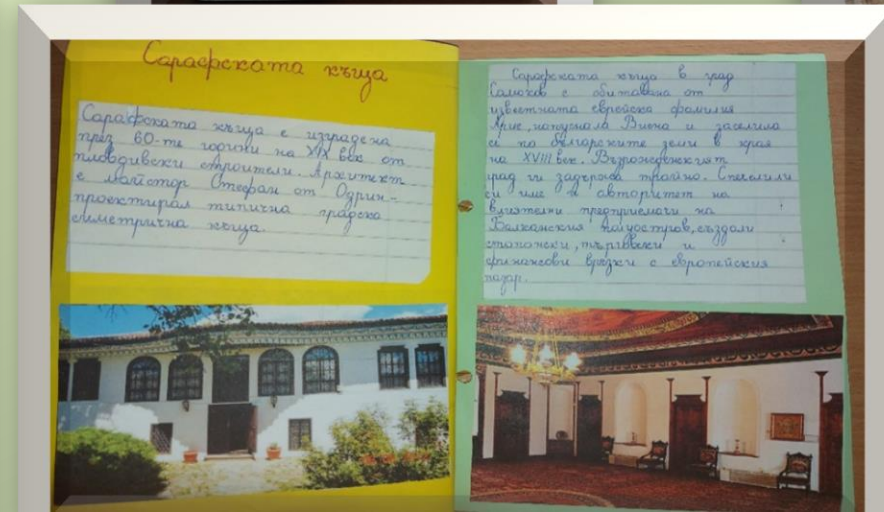 Сарафската къща
Сарафската къща е изградена
през 60-те години на XIX век от
пловдивски строители. Архитект
е майстор Стефан от Одрин-
проектирал типична градска
симетрична къща.
Сарафската къща в град
Самоков е обитавана от
известната еврейска фамилия
Арие, напуснала Виена и заселила
се по българските земи в края
на XVIII век. Възрожденският
град ги задържа трайно. Спечелили
си име и авторитет на
влиятелни предприемачи на
Балканския полуостров, създали
стопански, търговски и
финансови връзки с европейския
пазар.